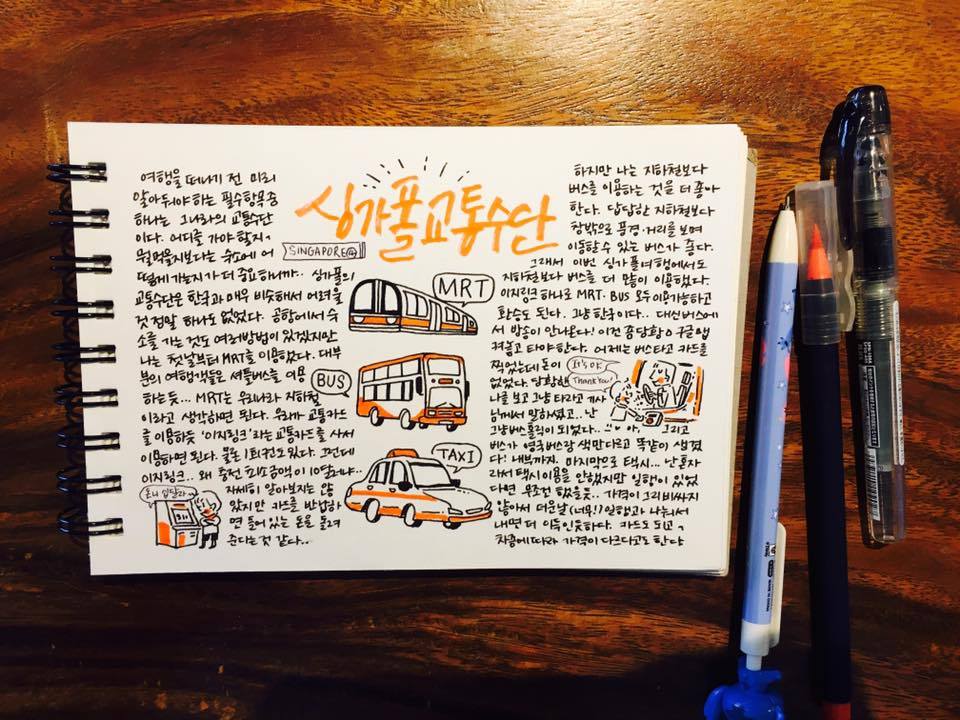 싱가폴교통수단
SINGAPORE
여행을 떠나기 전 미리
알아둬야 하는 필수항목 중
하나는 그 나라의 교통수단
이다. 어디를 가야 할지,
뭘 먹을지보다는 숙소에 어
떻게 가는지가 더 중요하니까.. 싱가폴의
교통수단은 한국과 매우 비슷해서 어려울
것 정말 하나도 없었다. 공항에서 숙
소를 가는 것도 여러방법이 있겠지만
나는 첫날부터 MRT를 이용했다. 대부
분의 여행객들은 셔틀버스를 이용
하는듯... MRT는 우리나라 지하철
이라고 생각하면 된다. 우리가 교통카드
를 이용하듯 '이지링크'라는 교통카드를 사서
이용하면 된다. 물론 1회권도 있다. 그런데
이지링크.. 왜 충전 최소금액이 10달러냐..
자세히 알아보지는 않
았지만 카드를 반납하
면 들어있는 돈을 돌려
준다는것 같다..
MRT
BUS
TAXI
하지만 나는 지하철보다
버스를 이용하는 것을 더 좋아
한다. 답답한 지하철보다
창밖으로 풍경·거리를 보며
이동할 수 있는 버스가 좋다.
그래서 이번 싱가폴여행에서도
지하철보다 버스를 더 많이 이용했다.
이지링크 하나로 MRT·BUS 모두 이용가능하고
환승도 된다. 그냥 한국이다.. 대신 버스에
서 방송이 안나온다! 이건 좀 당황 구글맵
켜놓고 타야한다. 어제는 버스타고 카드를
찍었는데 돈이
없었다. 당황한
나를 보고 그냥 타라고 기사
님께서 말하셨고.. 난
그냥 버스 홀릭이 되었다.. 아, 그리고
버스가 영국버스랑 색만 다르고 똑같이 생겼
다! 내부까지. 마지막으로 택시... 난 혼자
라서 택시이용을 안했지만 일행이 있었
다면 무조건 탔을듯.. 가격이 그리 비싸지
않아서 더운날(너무!) 일행과 나눠서
내면 더 이득인듯하다. 카드도 되고,
차종에따라 가격이 다르다고도 한다
It's ok
Thank you!